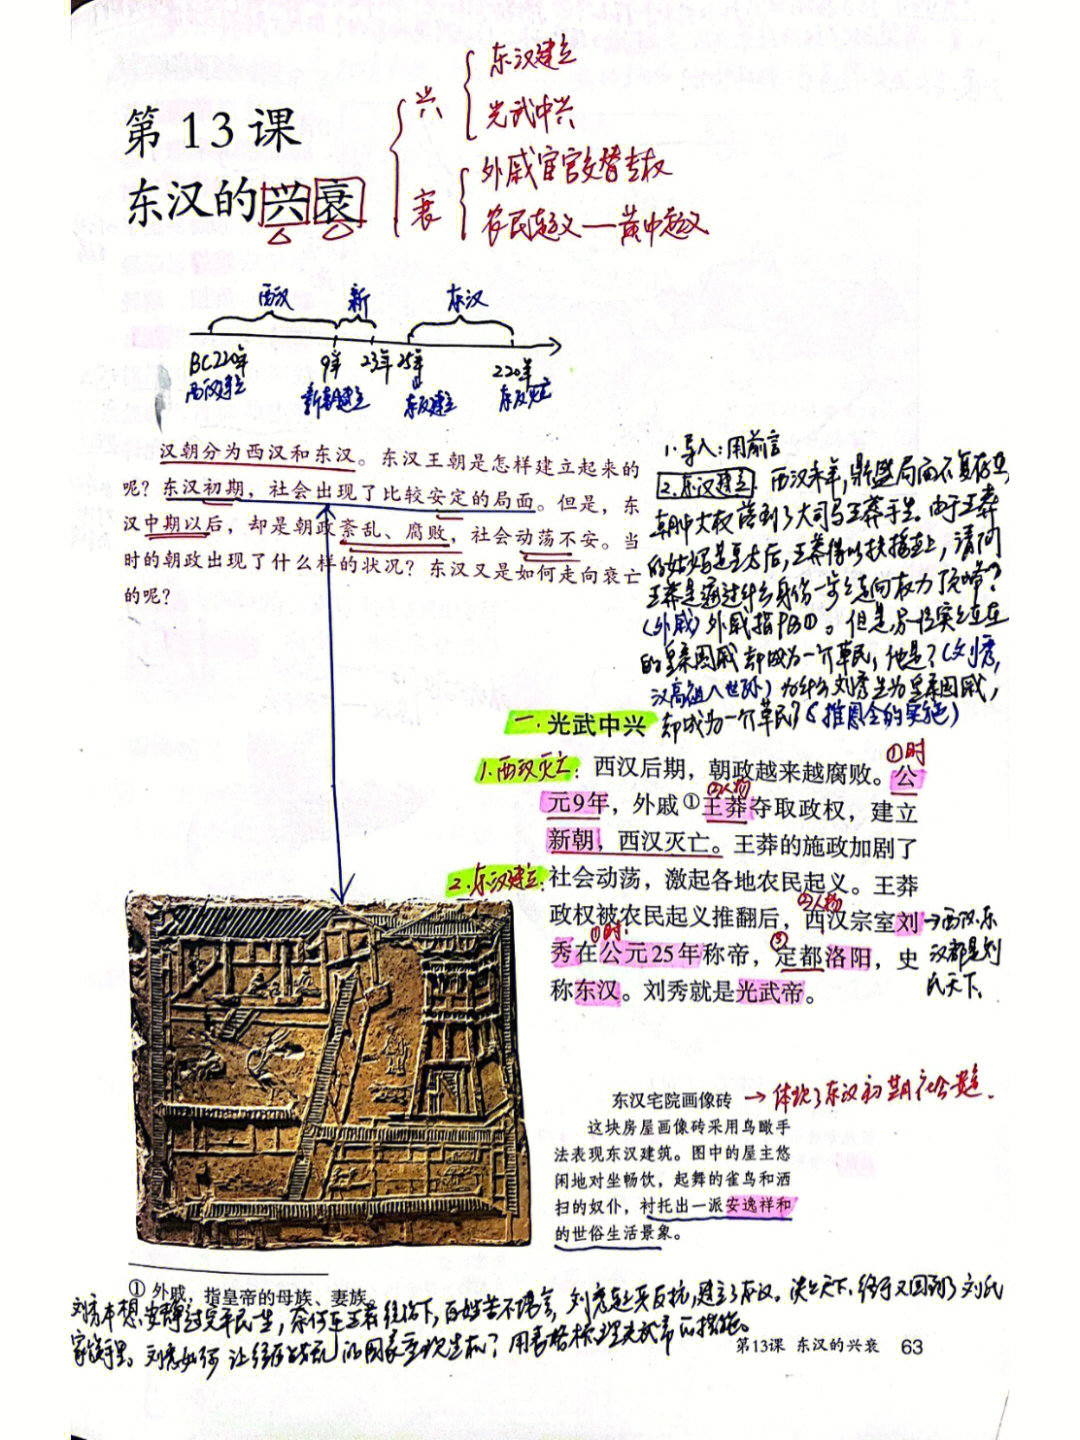 第13课
东汉的兴衰
兴
东汉建立
光武中兴
衰
外戚宦官交替专权
农民起义—黄巾起义
西汉 新 东汉
BC220年 9年 23年 25年 220年
西汉建立 新朝建立 东汉建立 东汉灭亡
汉朝分为西汉和东汉。东汉王朝是怎样建立起来的
呢？东汉初期，社会出现了比较安定的局面。但是，东
汉中期以后，却是朝政紊乱、腐败，社会动荡不安。当
时的朝政出现了什么样的状况？东汉又是如何走向衰亡
的呢？
1.导入：用前言
2.东汉建立：西汉末年，鼎盛局面不复存在
朝中大权落到了大司马王莽手里。由于王莽
的姑妈是皇太后，王莽得以扶摇直上，请问
王莽是通过什么身份一步步走向权力顶峰？
（外戚）外戚指P63①。但是，另一位实实在在
的皇亲国戚却成为一个草民，他是？（刘秀，
汉高祖九世孙）为什么刘秀是为皇亲国戚，
却成为一个草民？（推恩令的实施）
一.光武中兴
①时
1.西汉灭亡：西汉后期，朝政越来越腐败。公
②人物
元9年，外戚①王莽夺取政权，建立
新朝，西汉灭亡。王莽的施政加剧了
2.东汉建立：社会动荡，激起各地农民起义。王莽
②人物
政权被农民起义推翻后，西汉宗室刘
①时：
③
秀在公元25年称帝，定都洛阳，史
称东汉。刘秀就是光武帝。
→西汉、东
汉都是刘
氏天下。
东汉宅院画像砖 →体现了东汉初期社会
这块房屋画像砖采用鸟瞰手
法表现东汉建筑。图中的屋主悠
闲地对坐畅饮，起舞的雀鸟和洒
扫的奴仆，衬托出一派安逸祥和
的世俗生活景象。
① 外戚，指皇帝的母族、妻族。
刘秀本想安静过完平民一生，奈何在王莽统治下，百姓苦不堪言，刘秀起来反抗，建立了东汉。汉之天下，终于又回到了刘氏
家族手里。刘秀如何让经历战乱的国家重现生机？用表格梳理光武帝的措施。
第13课 东汉的兴衰 63